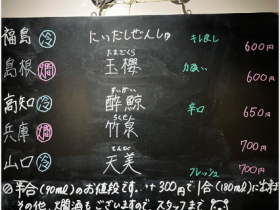 福島 冷 にいだしぜんしゅ キレ良し 600円
たまざくら
島根 燗 玉櫻 力強い 600円
すいげい
高知 冷 酔鯨 辛口 650円
ちくせん
兵庫 燗 竹泉 700円
てんび
山口 冷 天美 フレッシュ 700円
半合(90ml)のお値段です。 ++300円で1合(180ml)に出来
その他、燗酒もございますので、スタッフまで